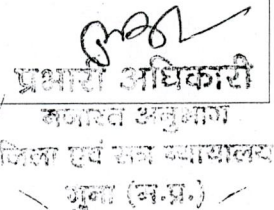 प्रभारी अधिकारी
नजारत अनुभाग
जिला एवं सत्र न्यायालय
गुना (म.प्र.)